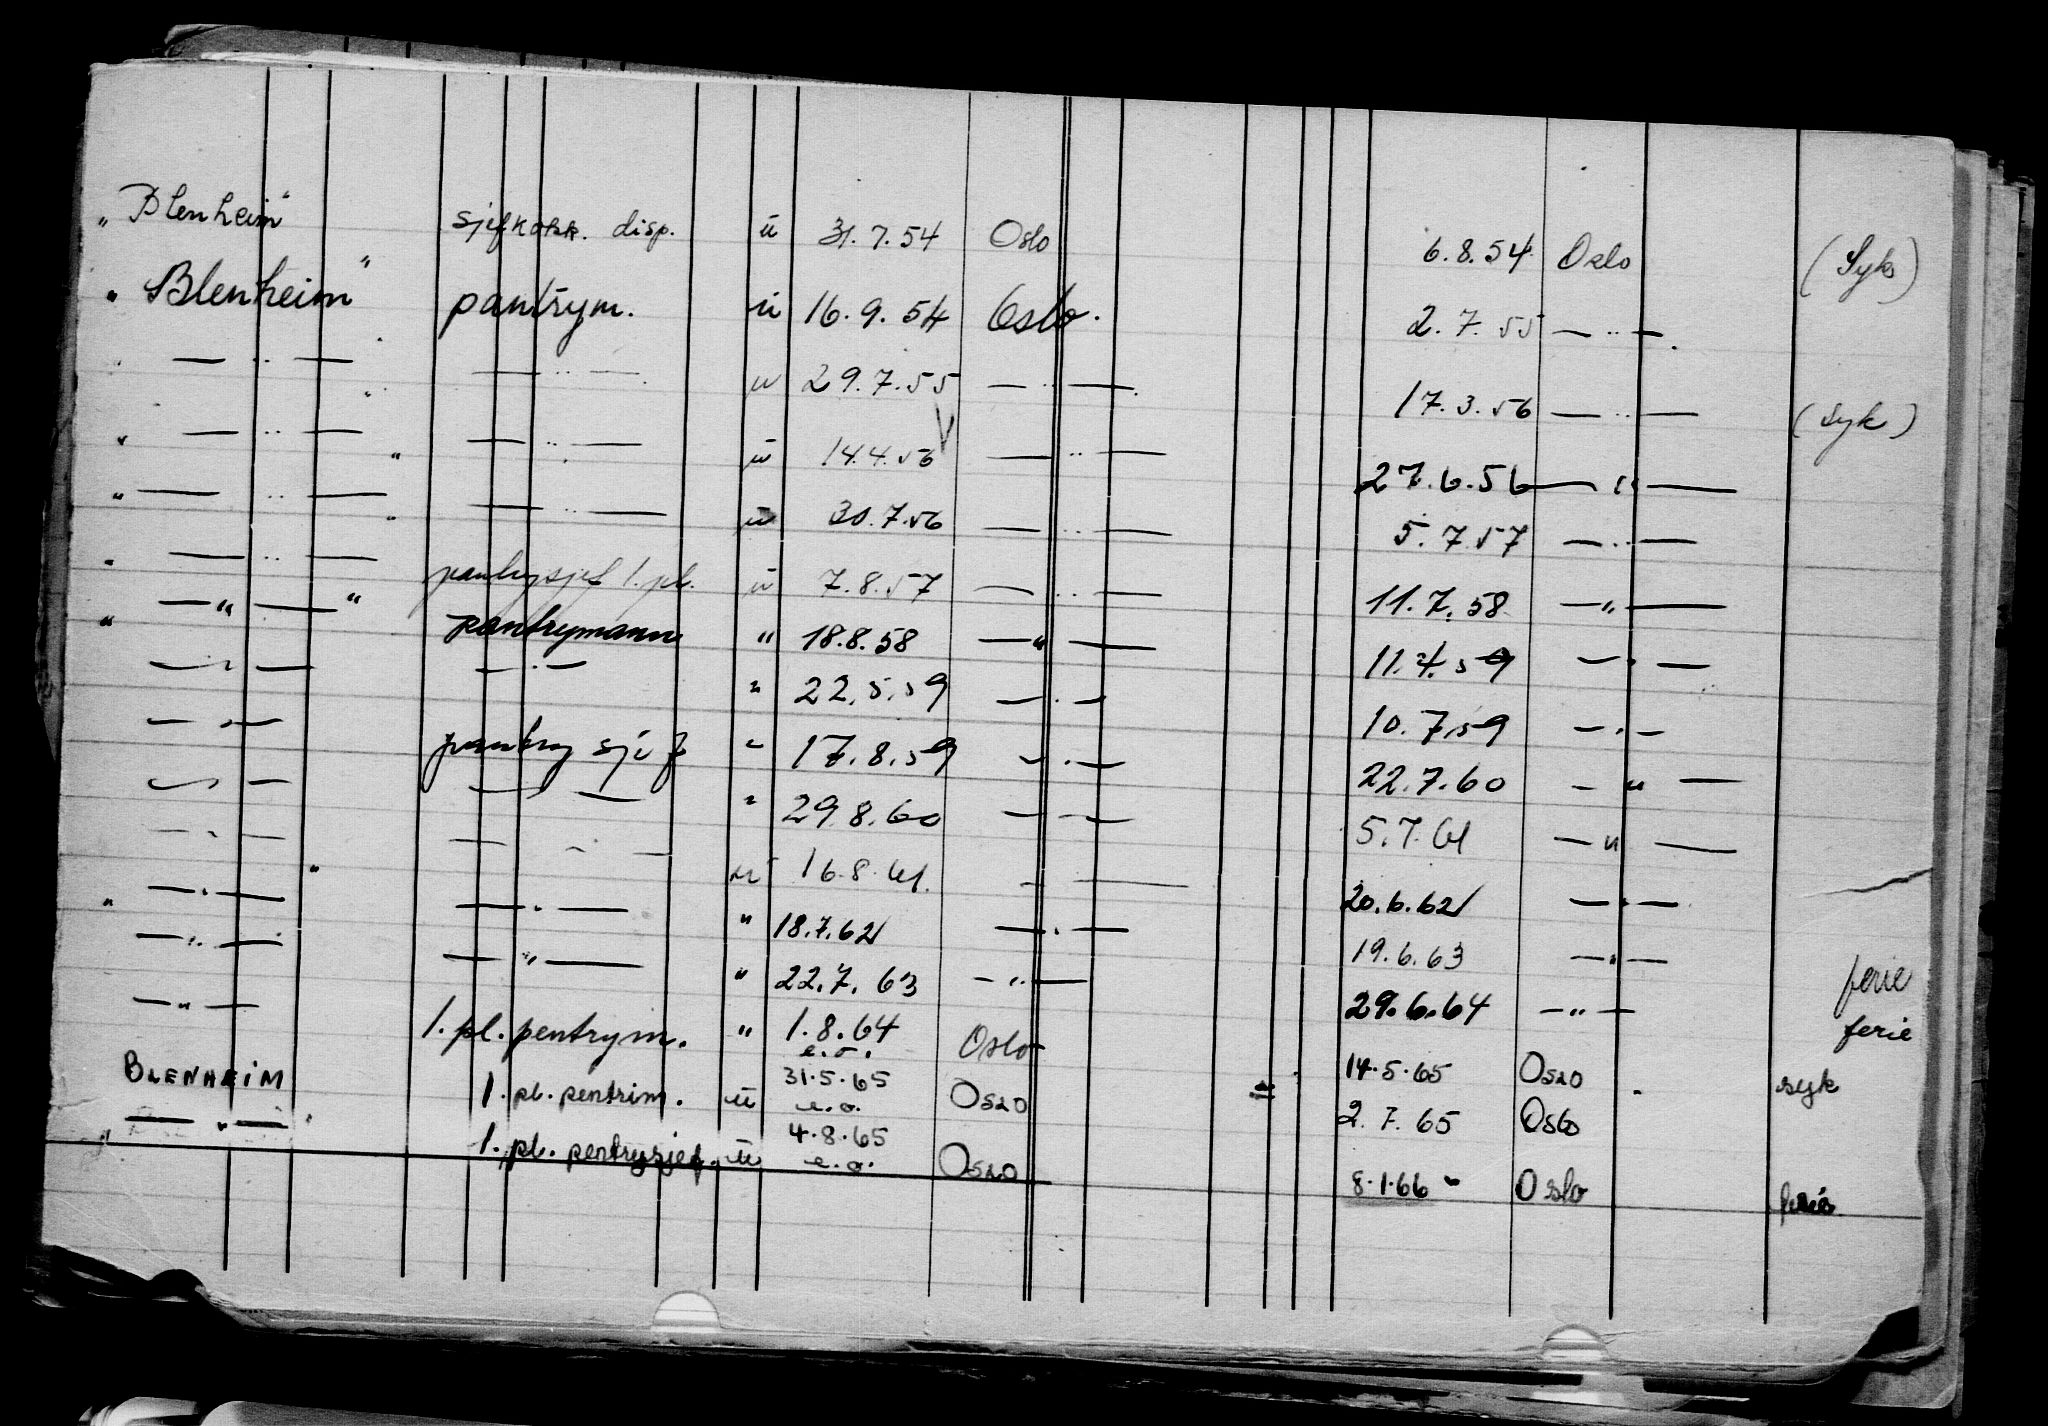 „ Blenheim" sjefkokk. disp. ü 31.7.54 Oslo 6.8.54 Oslo (Syk)
„ Blenheim" pantrym. ü 16.9.54 Oslo. 2.7.55 — " —
„ — " — " — " — ü 29.7.55 — " — 17.3.56 — " — (syk)
„ — " — " — " — ü 14.4.56 — " — 27.6.56 — " —
„ — " — " — " — ü 30.7.56 — " — 5.7.57 — " —
„ — " — " pantrysjef 1. pl. ü 7.8.57 — " — 11.7.58 — " —
„ — " — " pantrymann " 18.8.58 — " — 11.4.59 — " —
— " — — " — " 22.5.59 — " — 10.7.59 — " —
— " — pantry sjef " 17.8.59 — " — 22.7.60 — " —
— " — — " — " 29.8.60 — " — 5.7.61 — " —
— " — — " — ü 16.8.61. — " — 20.6.62 — " —
„ — " — " — " — " 18.7.62 — " — 19.6.63 — " — ferie
— " — — " — " 22.7.63 — " — 29.6.64 — " — ferie
— " — 1. pl. pentrym. " 1.8.64 Oslo 14.5.65 Oslo syk
e.o.
BLENHEIM 1. pl. pentrim. ü 31.5.65 Oslo 2.7.65 Oslo
e.o.
„ — " — " 1. pl. pentrysjef. ü 4.8.65 Oslo 8.1.66 Oslo ferie
e.o.